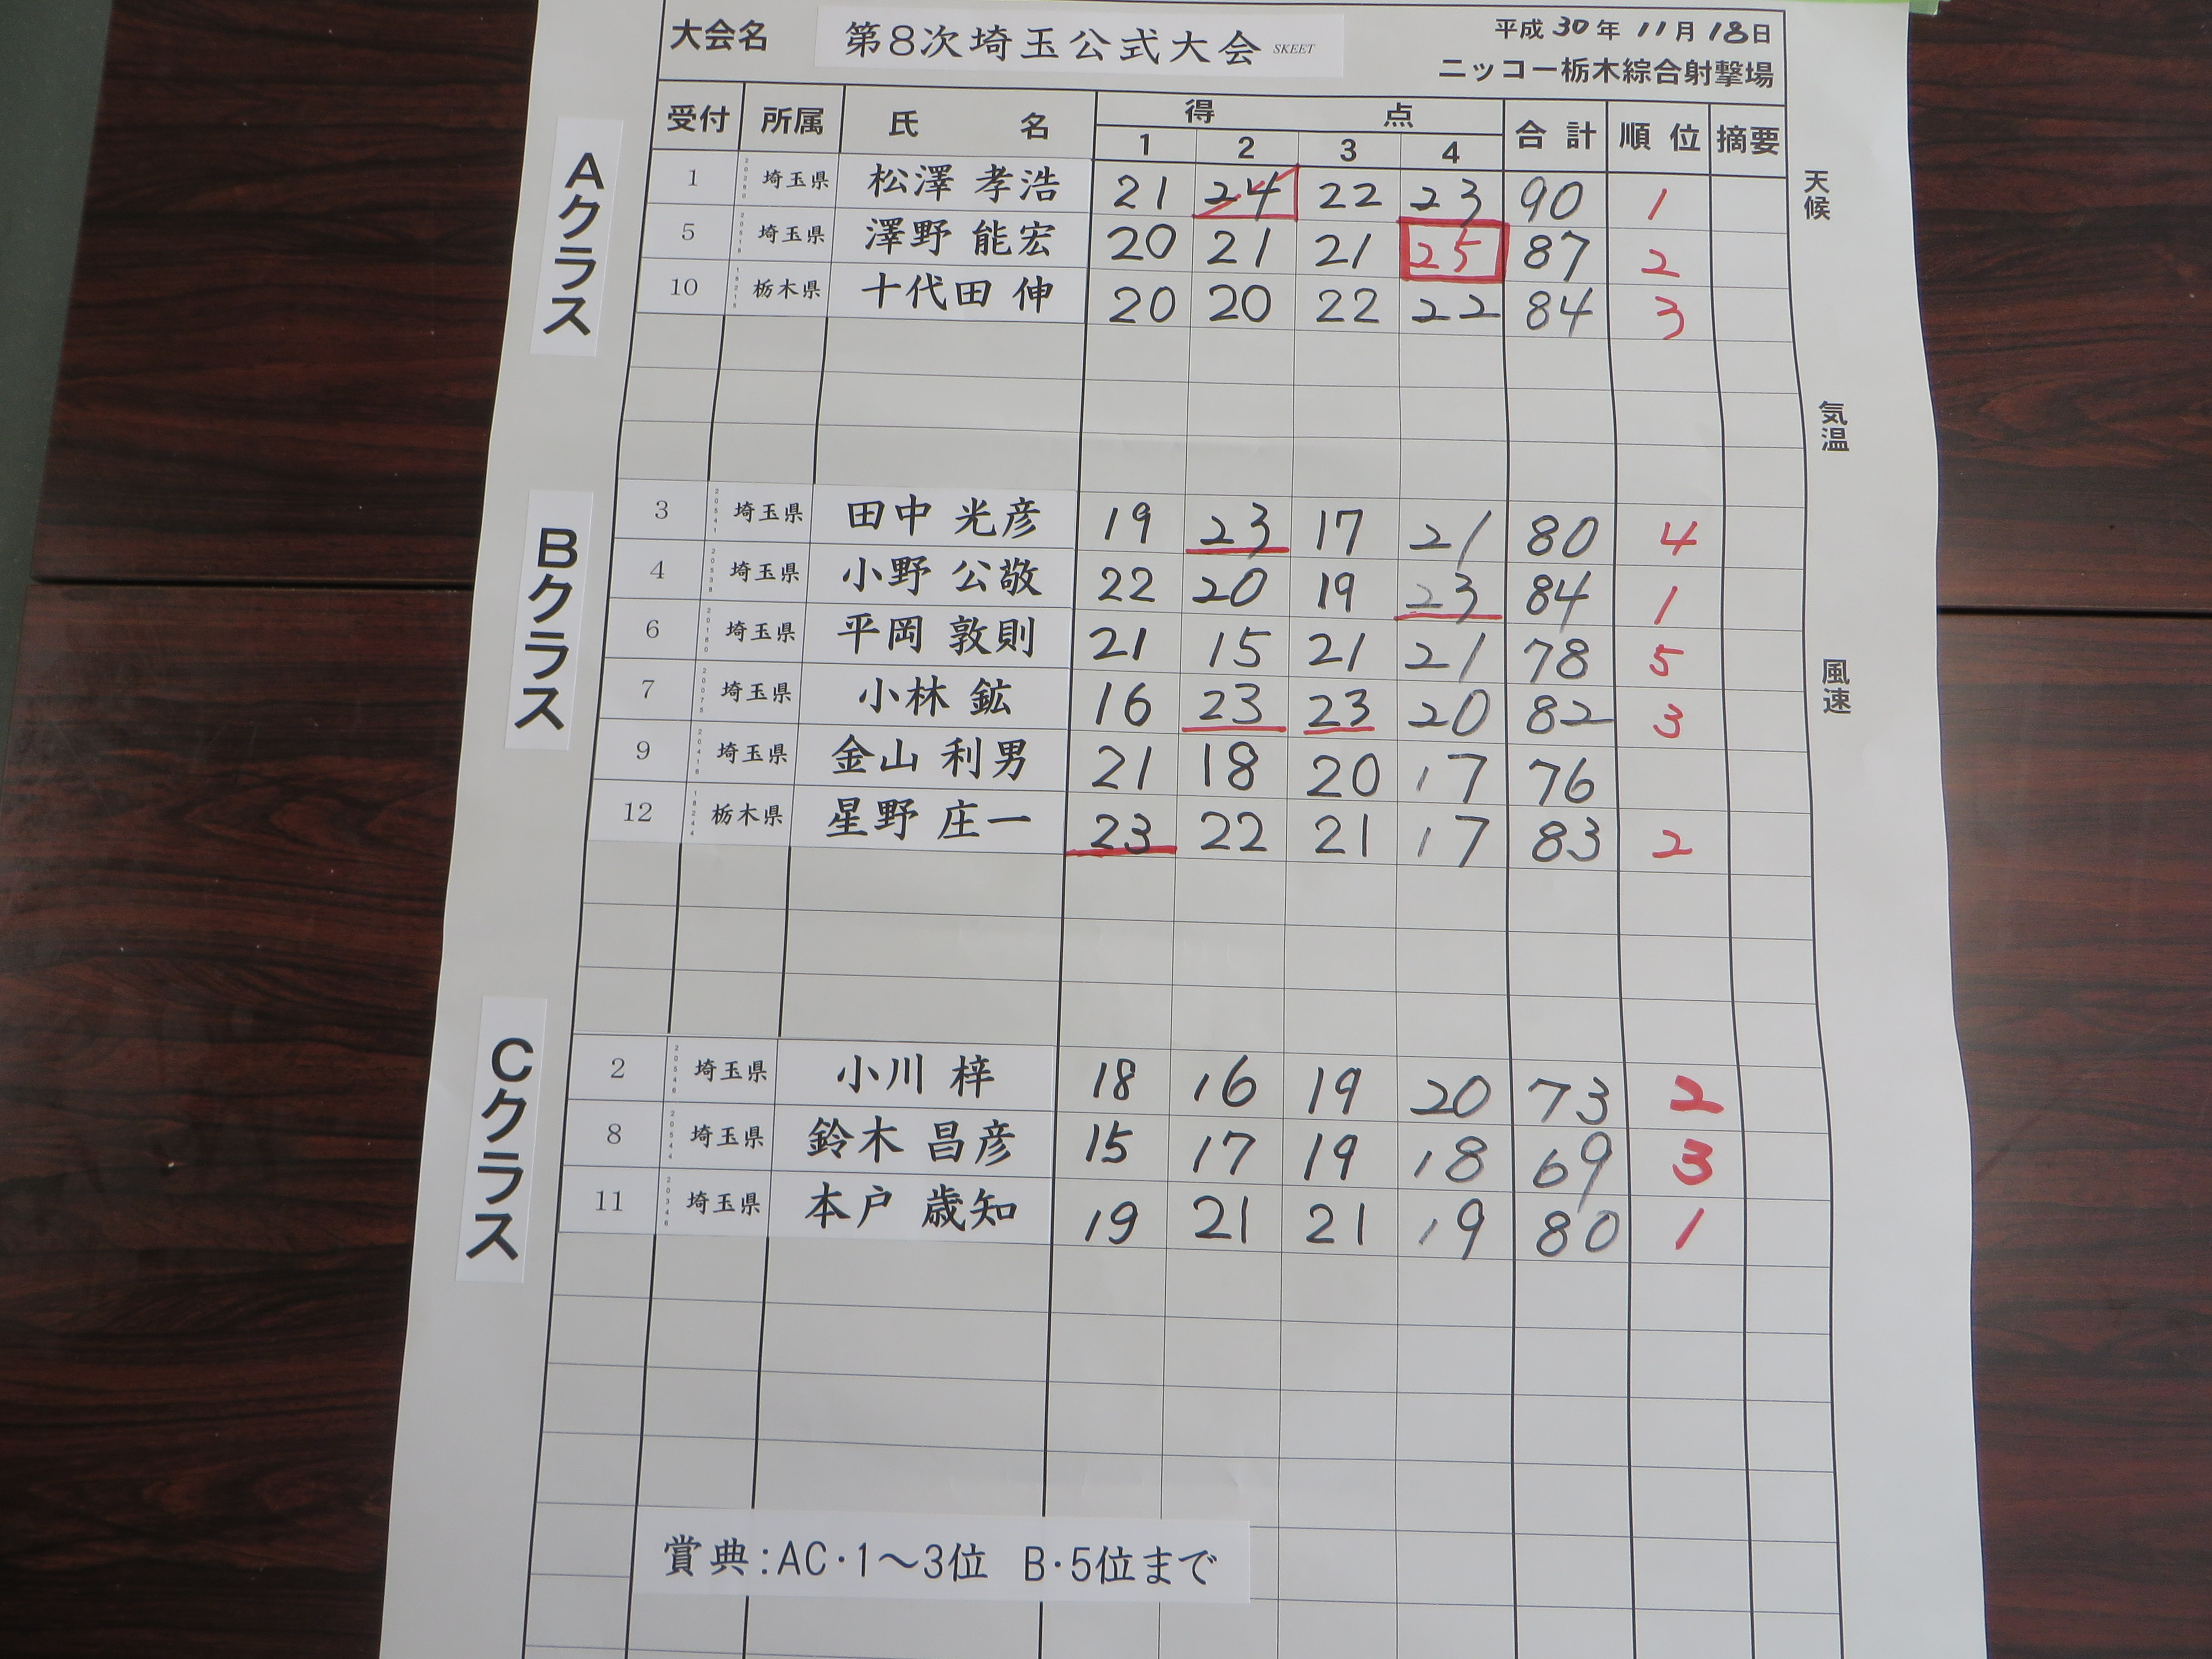 大会名 第8次埼玉公式大会 SKEET 平成30年11月18日
ニッコー栃木綜合射撃場
受付 所属 氏名 得点 合計 順位 摘要
1 2 3 4
Aクラス
1 埼玉県 松澤 孝浩 21 24 22 23 90 1
5 埼玉県 澤野 能宏 20 21 21 25 87 2
10 栃木県 十代田 伸 20 20 22 22 84 3
Bクラス
3 埼玉県 田中 光彦 19 23 17 21 80 4
4 埼玉県 小野 公敬 22 20 19 23 84 1
6 埼玉県 平岡 敦則 21 15 21 21 78 5
7 埼玉県 小林 鉱 16 23 23 20 82 3
9 埼玉県 金山 利男 21 18 20 17 76
12 栃木県 星野 庄一 23 22 21 17 83 2
Cクラス
2 埼玉県 小川 梓 18 16 19 20 73 2
8 埼玉県 鈴木 昌彦 15 17 19 18 69 3
11 埼玉県 本戸 歳知 19 21 21 19 80 1
賞典:AC・1～3位 B・5位まで
天候
気温
風速